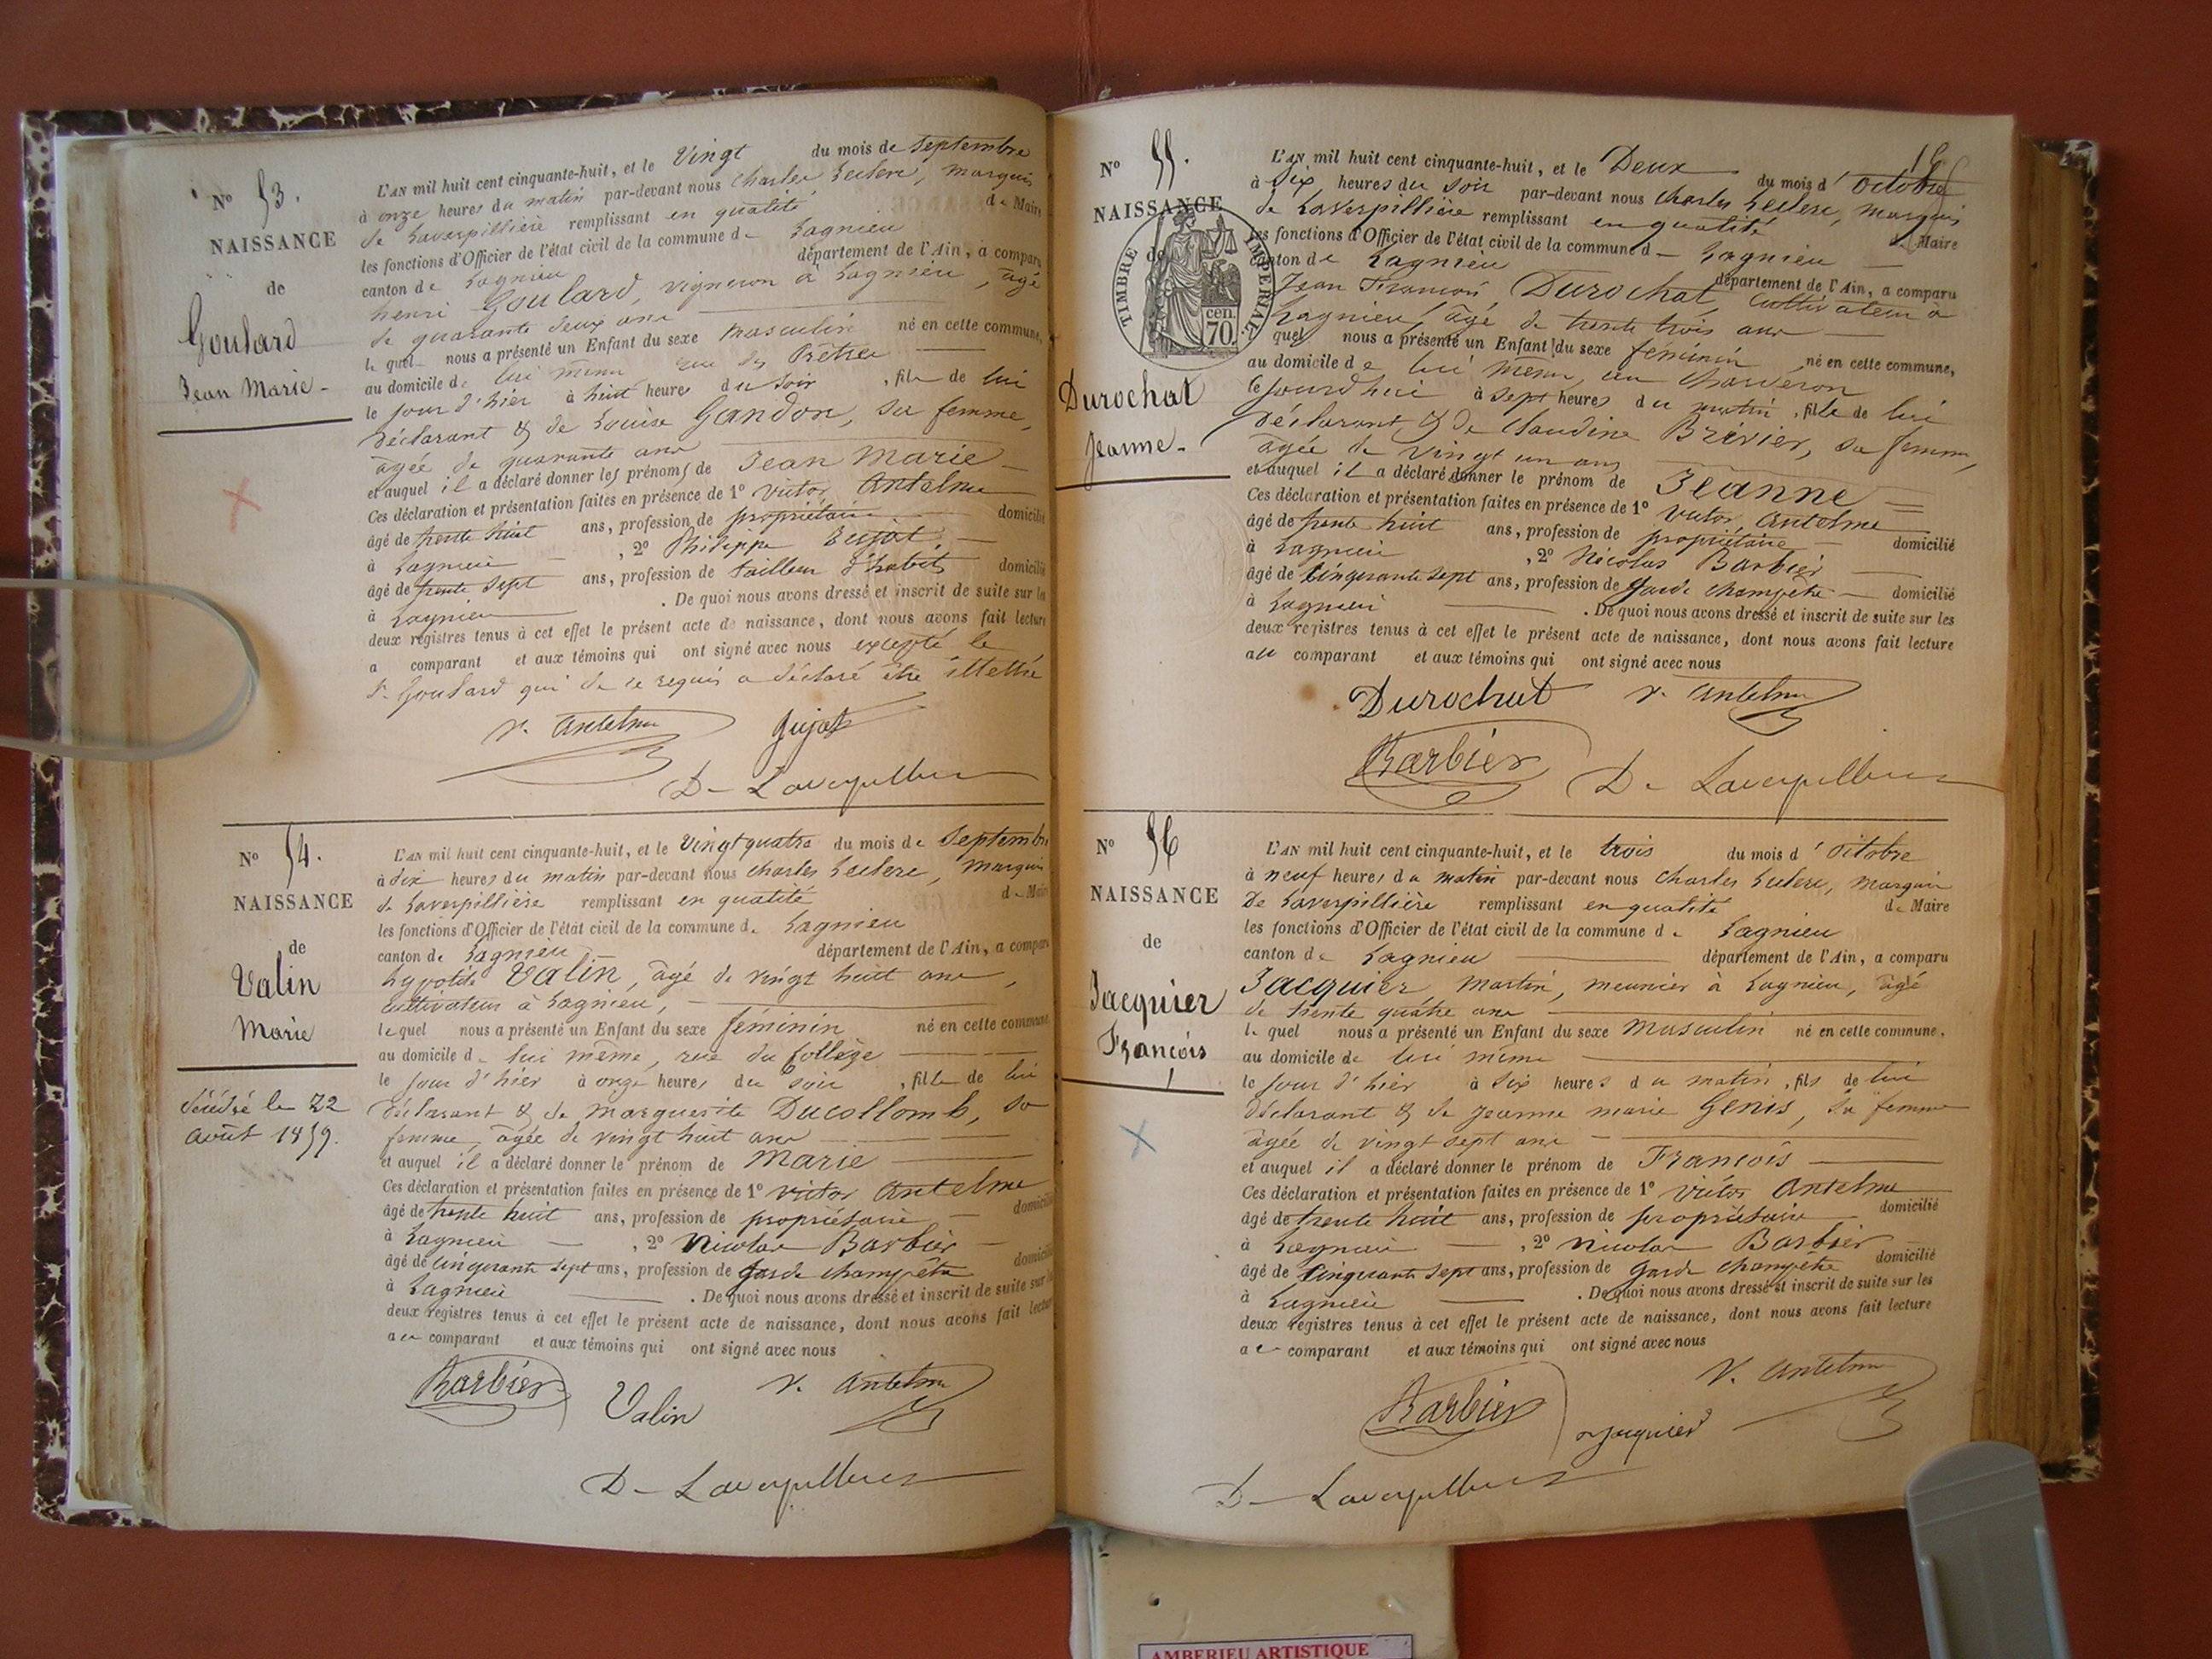 N° 53.
NAISSANCE
de
Goulard
Jean Marie -
L'AN mil huit cent cinquante-huit, et le Vingt du mois de Septembre
à onze heures du matin par-devant nous Charles Leclerc, marquis
de Laverpillière remplissant en qualité de Maire
les fonctions d'Officier de l'état civil de la commune de Lagnieu
canton de Lagnieu département de l'Ain, a comparu
henri Goulard, vigneron à Lagnieu, âgé
de quarante deux ans
lequel nous a présenté un Enfant du sexe masculin né en cette commune,
au domicile de lui même rue des Prêtres
le jour d'hier à huit heures du soir, fils de lui
déclarant & de Louise Gandon, sa femme,
âgée de quarante ans
et auquel il a déclaré donner les prénoms de Jean Marie
Ces déclaration et présentation faites en présence de 1° victor Antelme
âgé de trente huit ans, profession de propriétaire domicilié
à Lagnieu, 2° Philippe Gujat
âgé de trente sept ans, profession de tailleur d'habits domicilié
à Lagnieu. De quoi nous avons dressé et inscrit de suite sur les
deux registres tenus à cet effet le présent acte de naissance, dont nous avons fait lecture
a comparant et aux témoins qui ont signé avec nous excepté le
Sr Goulard qui de ce requis a déclaré être illettré
V. Antelme Gujat
De Laverpilliere
N° 54.
NAISSANCE
de
Valin
Marie
décédé le 22
août 1859.
L'AN mil huit cent cinquante-huit, et le Vingt quatre du mois de Septembre
à dix heures du matin par-devant nous Charles Leclerc, marquis
de Laverpillière remplissant en qualité de Maire
les fonctions d'Officier de l'état civil de la commune de Lagnieu
canton de Lagnieu département de l'Ain, a comparu
hypolite Valin, âgé de vingt huit ans,
cultivateur à Lagnieu,
lequel nous a présenté un Enfant du sexe féminin né en cette commune
au domicile de lui même, rue du Collège
le jour d'hier à onze heures du soir, fille de lui
déclarant & de Marguerite Ducollomb, sa
femme, âgée de vingt huit ans
et auquel il a déclaré donner le prénom de Marie
Ces déclaration et présentation faites en présence de 1° victor Antelme
âgé de trente huit ans, profession de propriétaire domicilié
à Lagnieu, 2° Nicolas Barbier
âgé de Cinquante sept ans, profession de garde champêtre domicilié
à Lagnieu. De quoi nous avons dressé et inscrit de suite sur les
deux registres tenus à cet effet le présent acte de naissance, dont nous avons fait lecture
au comparant et aux témoins qui ont signé avec nous
Barbier Valin V. Antelme
De Laverpilliere
N° 55.
NAISSANCE
de
TIMBRE IMPERIAL.
cen.
70.
Durochat
Jeanne -
L'AN mil huit cent cinquante-huit, et le Deux du mois d'Octobre
à Six heures du soir par-devant nous Charles Leclerc, marquis
de Laverpillière remplissant en qualité de Maire
les fonctions d'Officier de l'état civil de la commune de Lagnieu
canton de Lagnieu département de l'Ain, a comparu
Jean François Durochat, Cultivateur à
Lagnieu, âgé de trente trois ans
lequel nous a présenté un Enfant du sexe féminin né en cette commune,
au domicile de lui même, au Charveron
le jourdhui à sept heures du matin, fille de lui
déclarant & de Claudine Brévier, sa femme,
âgée de vingt un ans
et auquel il a déclaré donner le prénom de Jeanne
Ces déclaration et présentation faites en présence de 1° Victor Antelme
âgé de trente huit ans, profession de propriétaire domicilié
à Lagnieu, 2° Nicolas Barbier
âgé de Cinquante sept ans, profession de garde champêtre domicilié
à Lagnieu. De quoi nous avons dressé et inscrit de suite sur les
deux registres tenus à cet effet le présent acte de naissance, dont nous avons fait lecture
au comparant et aux témoins qui ont signé avec nous
Durochat V. Antelme
Barbier De Laverpilliere
N° 56
NAISSANCE
de
Jacquier
François
L'AN mil huit cent cinquante-huit, et le trois du mois d'Octobre
à neuf heures du matin par-devant nous Charles Leclerc, marquis
De Laverpillière remplissant en qualité de Maire
les fonctions d'Officier de l'état civil de la commune de Lagnieu
canton de Lagnieu département de l'Ain, a comparu
Jacquier Martin, meunier à Lagnieu, âgé
de trente quatre ans
lequel nous a présenté un Enfant du sexe Masculin né en cette commune.
au domicile de lui même
le jour d'hier à Six heures du matin, fils de lui
déclarant & de Jeanne marie Genis, sa femme
âgée de vingt sept ans
et auquel il a déclaré donner le prénom de François
Ces déclaration et présentation faites en présence de 1° Victor Antelme
âgé de trente huit ans, profession de propriétaire domicilié
à Lagnieu, 2° Nicolas Barbier
âgé de Cinquante sept ans, profession de Garde champêtre domicilié
à Lagnieu. De quoi nous avons dressé et inscrit de suite sur les
deux registres tenus à cet effet le présent acte de naissance, dont nous avons fait lecture
au comparant et aux témoins qui ont signé avec nous
V. Antelme
Barbier Jacquier
De Laverpilliere
AMBERIEU ARTISTIQUE